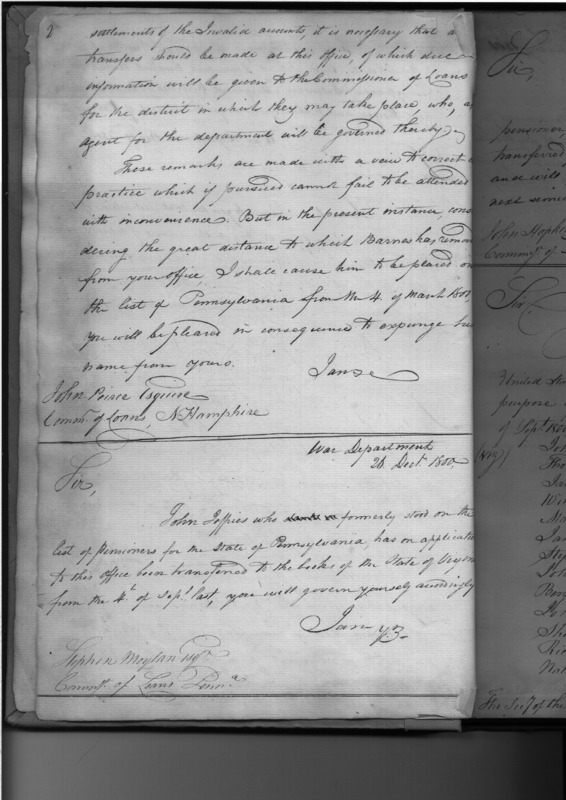 2
settlements of the Invalid accounts, it is necessary that a
transfers should be made at this office, of which due
information will be given to the Commissioner of Loans
for the district in which they may take place who, as
agent for the department will be governed thereby.
These remarks are made with a view to correct a
practice which if pursued cannot fail to be attended
with inconvenience. But in the present instance, cons
dering the great distance to which Barnes has remov
from your office, I shall cause him to be placed on
the list of Pennsylvania from the 4. of March 1800,
you will be pleased in consequence to expunge his
name from yours.
I am &c
John Peirce Esquire
Commr. of Loans, N. Hampshire
War Department
26 Decr. 1800,
Sir,
John Jeffries who formerly stood on the
list of Pensioners for the State of Pennsylvania has on applicati
to this office been transferred to the books of the State of Virgin
from the 4th of Sept. last, you will govern yourself accordingly
I am yrs.
Stephen Moylan Esqr.
Commr. of Loans Penna.
Sir,
pensioner
transferred
and will
next
John Hopki
Commr. of
Sir,
United Sta
purpose
of Sept. 180
Joh
Tho
Jam
Wil
Ma
Sam
Step
Joh
Ben
Ric
Nat
The Secy of the